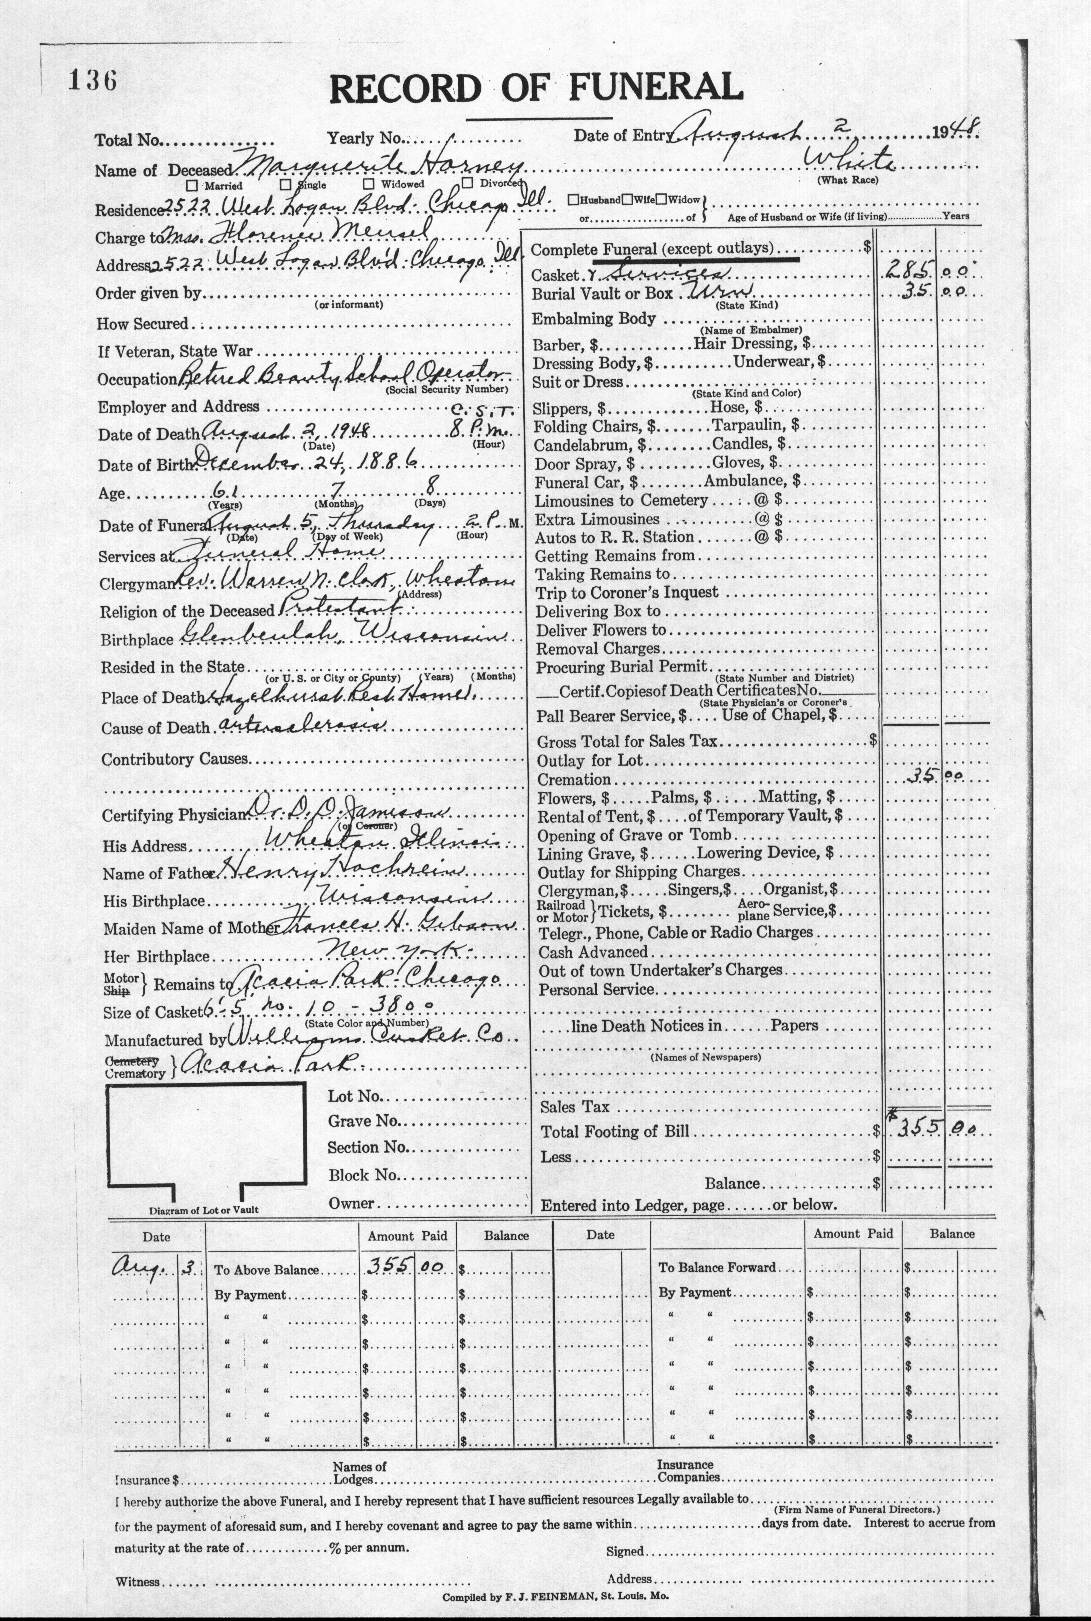 136
RECORD OF FUNERAL
Total No............... Yearly No...../......... Date of Entry August 2, 1948.
Name of Deceased Marguerite Horney White
☐ Married ☐ Single ☐ Widowed ☐ Divorced (What Race)
Residence 2522 West Logan Blvd. Chicago Ill.
☐Husband☐Wife☐Widow}
or...............of } Age of Husband or Wife (if living)...............Years
Charge to Mrs. Florence Mensel
Address 2522 West Logan Blvd. Chicago, Ill.
Order given by
(or informant)
How Secured
If Veteran, State War
Occupation Retired Beauty School Operator
(Social Security Number)
Employer and Address C.S.T.
Date of Death August 2, 1948 8 P.M.
(Date) (Hour)
Date of Birth December 24, 1886
Age 61 7 8
(Years) (Months) (Days)
Date of Funeral August 5, Thursday 2 P. M.
(Date) (Day of Week) (Hour)
Services at Funeral Home
Clergyman Rev. Warren N. Clark, Wheaton
(Address)
Religion of the Deceased Protestant
Birthplace Glenbeulah, Wisconsin
Resided in the State
(or U. S. or City or County) (Years) (Months)
Place of Death Hazelhurst Rest Home
Cause of Death arteriosclerosis
Contributory Causes
Certifying Physician Dr. D. O. Jamison
(or Coroner)
His Address Wheaton, Illinois
Name of Father Henry Hochrein
His Birthplace Wisconsin
Maiden Name of Mother Frances H. Gibson
Her Birthplace New York
Motor
Ship } Remains to Acacia Park - Chicago
Size of Casket 6'-5 No. 10 - 3800
(State Color and Number)
Manufactured by Williams Casket Co.
Cemetery
Crematory } Acacia Park
Lot No.
Grave No.
Section No.
Block No.
Owner
Diagram of Lot or Vault
Complete Funeral (except outlays) $
Casket & Services 285 00
Burial Vault or Box Urn 35 00
(State Kind)
Embalming Body
(Name of Embalmer)
Barber, $ Hair Dressing, $
Dressing Body, $ Underwear, $
Suit or Dress
(State Kind and Color)
Slippers, $ Hose, $
Folding Chairs, $ Tarpaulin, $
Candelabrum, $ Candles, $
Door Spray, $ Gloves, $
Funeral Car, $ Ambulance, $
Limousines to Cemetery @ $
Extra Limousines @ $
Autos to R. R. Station @ $
Getting Remains from
Taking Remains to
Trip to Coroner's Inquest
Delivering Box to
Deliver Flowers to
Removal Charges
Procuring Burial Permit
(State Number and District)
Certif.Copies of Death Certificates No.
(State Physician's or Coroner's
Pall Bearer Service, $.... Use of Chapel, $
Gross Total for Sales Tax $
Outlay for Lot
Cremation 35 00
Flowers, $ Palms, $ Matting, $
Rental of Tent, $ of Temporary Vault, $
Opening of Grave or Tomb
Lining Grave, $ Lowering Device, $
Outlay for Shipping Charges
Clergyman, $ Singers, $ Organist, $
Railroad
or Motor } Tickets, $ Aero-
plane Service, $
Telegr., Phone, Cable or Radio Charges
Cash Advanced
Out of town Undertaker's Charges
Personal Service
line Death Notices in Papers
(Names of Newspapers)
Sales Tax
Total Footing of Bill $ $355 00
Less $
Balance $
Entered into Ledger, page......or below.
Date Amount Paid Balance Date Amount Paid Balance
Aug. 3 To Above Balance 355 00 $ To Balance Forward $
By Payment $ $ By Payment $ $
" " $ $ " " $ $
" " $ $ " " $ $
" " $ $ " " $ $
" " $ $ " " $ $
" " $ $ " " $ $
" " $ $ " " $ $
Insurance $ Names of
Lodges Insurance
Companies
I hereby authorize the above Funeral, and I hereby represent that I have sufficient resources Legally available to
(Firm Name of Funeral Directors.)
for the payment of aforesaid sum, and I hereby covenant and agree to pay the same within....................days from date. Interest to accrue from
maturity at the rate of.............% per annum. Signed
Witness Address
Compiled by F. J. FEINEMAN, St. Louis, Mo.